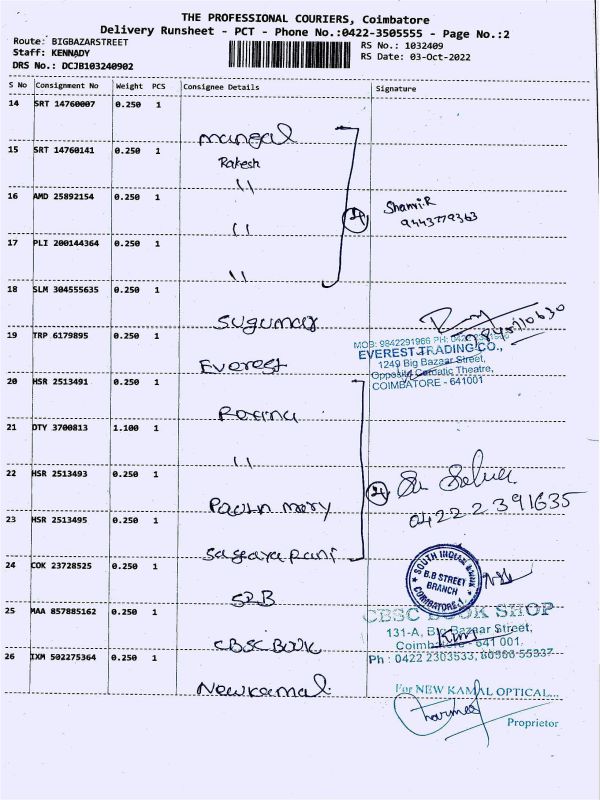 THE PROFESSIONAL COURIERS, Coimbatore
Delivery Runsheet - PCT - Phone No.:0422-3505555 - Page No.:2
Route: BIGBAZARSTREET
RS No.: 1032409
Staff: KENNADY
RS Date: 03-Oct-2022
DRS No.: DCJB103240902
S No Consignment No Weight PCS Consignee Details Signature
14 SRT 14760007 0.250 1
mangal
15 SRT 14760141 0.250 1
Rakesh
"
16 AMD 25892154 0.250 1
Shanvi.R
"
4
9443779363
17 PLI 200144364 0.250 1
"
18 SLM 304555635 0.250 1
Sugumar
19 TRP 6179895 0.250 1
MOB: 9842291966 PH: 0422
EVEREST TRADING CO.,
Everest
1249 Big Bazaar Street,
Opposite Theatre,
20 HSR 2513491 0.250 1
COIMBATORE - 641001
21 DTY 3700813 1.100 1
"
22 HSR 2513493 0.250 1
4
mary
04222391635
23 HSR 2513495 0.250 1
24 COK 23728525 0.250 1
SOUTH INDIAN BANK
B.B STREET
BRANCH
COIMBATORE-1
25 MAA 857885162 0.250 1
CBSC BOOK SHOP
131-A, Big Bazaar Street,
CBSC BOOK
Coimbatore - 641 001.
Ph : 0422 2303533,
26 IXM 502275364 0.250 1
Newkamal
For NEW KAMAL OPTICAL...
Proprietor